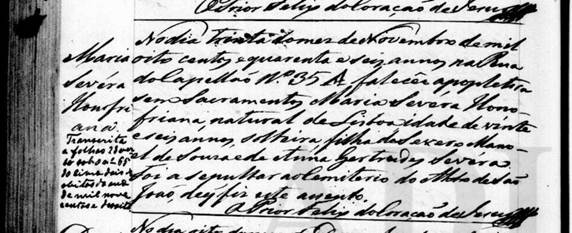 O Prior Felix do Coração de Jesus
Maria
Sevéra
Honofri
ana.
Transcrita
a folhas
obitos do ano
de mil nove
centos e
No dia trinta do mez de Novembro de mil
oito centos e quarenta e seis annos na Rua
do Capellão Nº 35 A, falecêo apopletica
sem Sacramentos Maria Severa Hono
friana, natural de Lisboa idade de vinte
e seis annos, solteira, filha de Severo Mano
el de Souza e de Anna Gertrudes Severa
foi a sepultar ao Cemiterio do Alto de São
João, de q fiz este assento.
O Prior Felix do Coração de Jesus
No dia oito do mez de Dezembro de